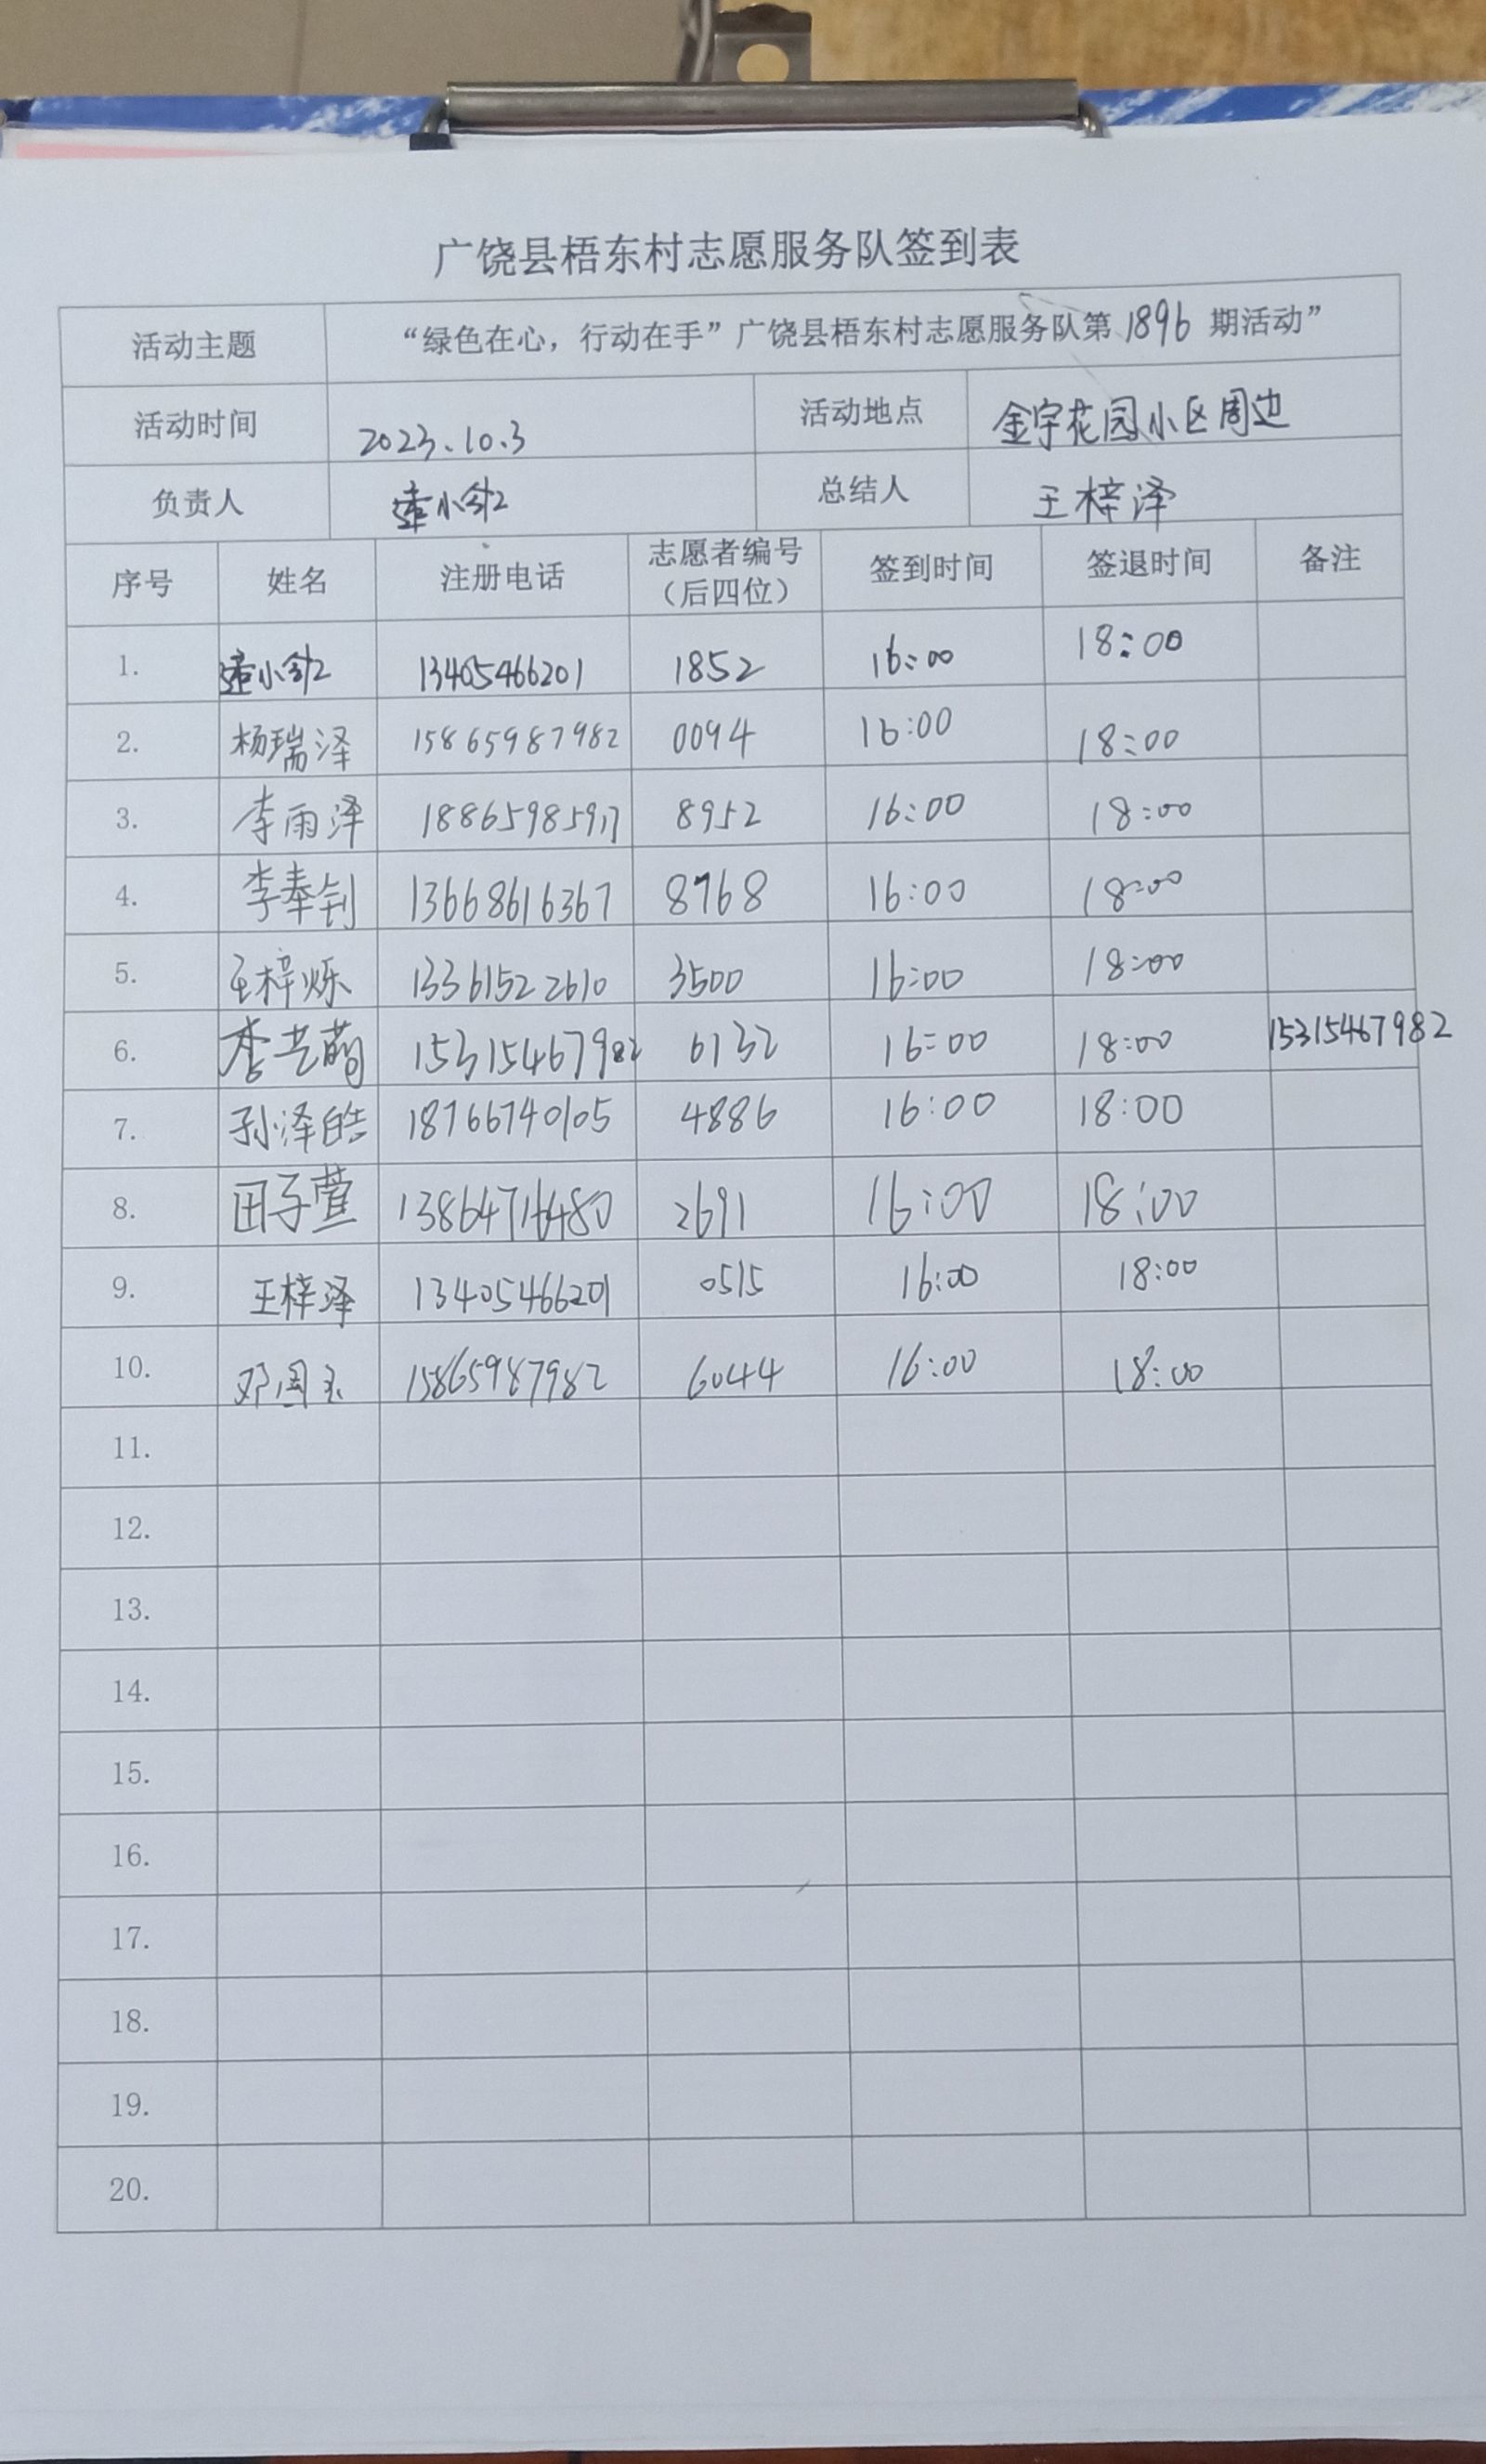 广饶县梧东村志愿服务队签到表
活动主题 “绿色在心，行动在手”广饶县梧东村志愿服务队第1896期活动”
活动时间 2023.10.3 活动地点 金宇花园小区周边
负责人 总结人 王梓泽
序号 姓名 注册电话 志愿者编号（后四位） 签到时间 签退时间 备注
1. 13405466201 1852 16:00 18:00
2. 杨瑞泽 15865987982 0094 16:00 18:00
3. 李雨泽 18865985917 8952 16:00 18:00
4. 李奉钊 13668616367 8768 16:00 18:00
5. 王梓烁 13361522610 3500 16:00 18:00
6. 李艺萌 15315467982 6132 16:00 18:00 15315467982
7. 孙泽皓 18766740105 4886 16:00 18:00
8. 田子萱 13864716480 2691 16:00 18:00
9. 王梓泽 13405466201 0515 16:00 18:00
10. 15865987982 6044 16:00 18:00
11.
12.
13.
14.
15.
16.
17.
18.
19.
20.